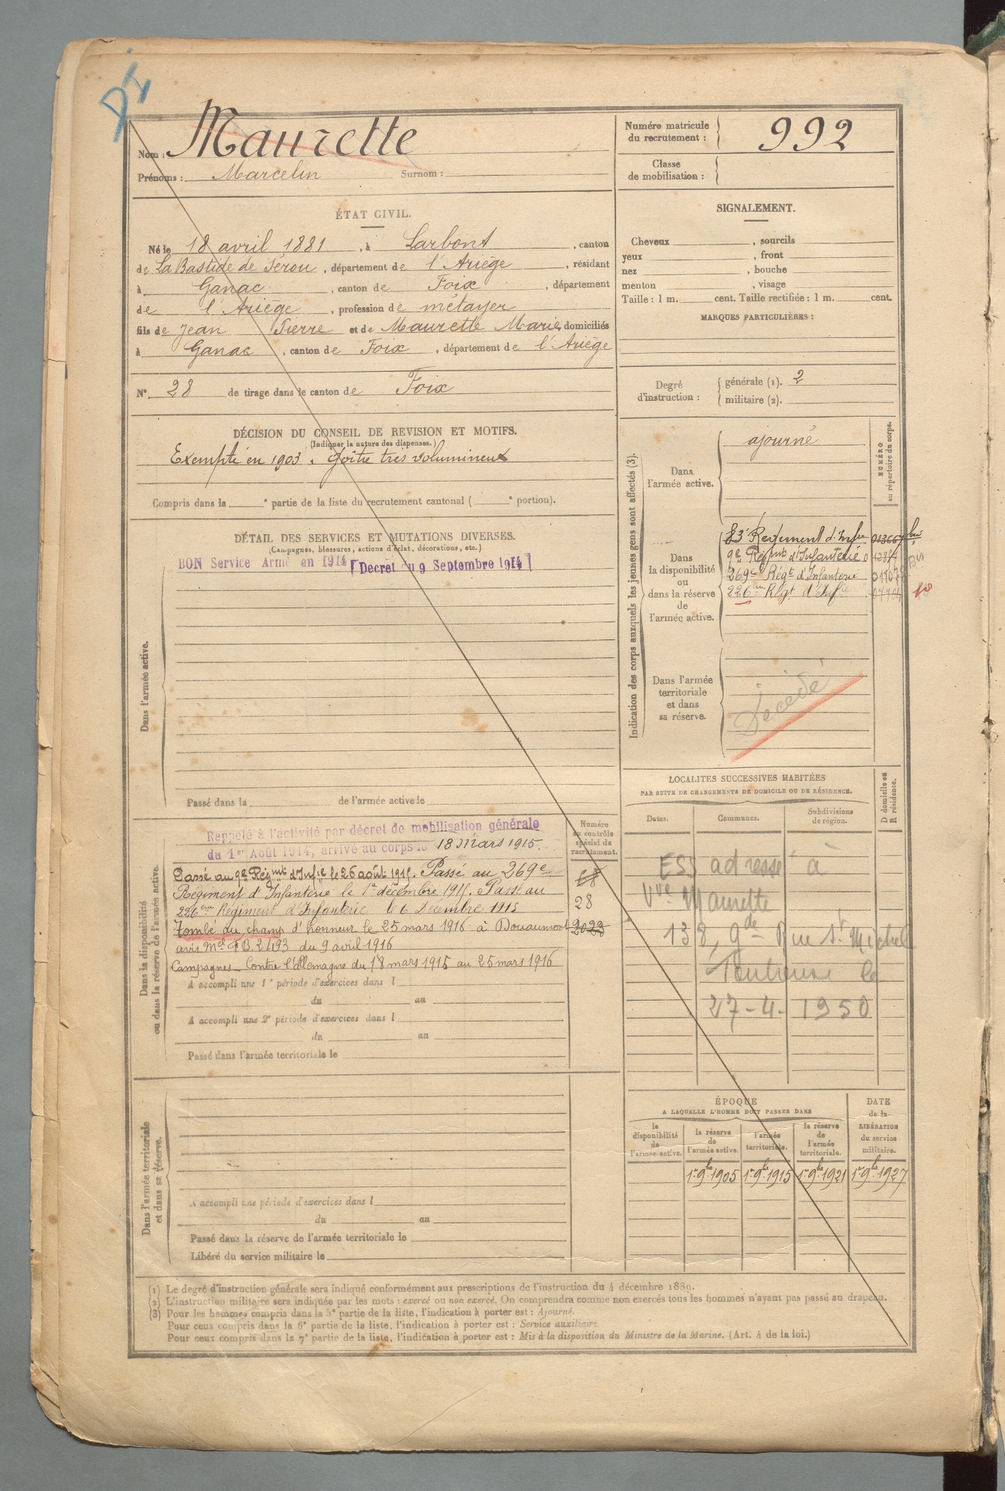 Nom : Maurette
Prénoms : Marcelin Surnom :
Numéro matricule
du recrutement : 992
Classe
de mobilisation :
ÉTAT CIVIL.
Né le 18 avril 1881, à Larbont, canton
de La Bastide de Sérou, département de l'Ariège, résidant
à Ganac, canton de Foix, département
de l'Ariège, profession de métayer
fils de Jean Pierre et de Maurette Marie, domiciliés
à Ganac, canton de Foix, département de l'Ariège
N° 28 de tirage dans le canton de Foix
DÉCISION DU CONSEIL DE REVISION ET MOTIFS.
(Indiquer la nature des dispenses.)
Exempté en 1903. Goitre très volumineux
Compris dans la ° partie de la liste du recrutement cantonal ( ° portion).
DÉTAIL DES SERVICES ET MUTATIONS DIVERSES.
(Campagnes, blessures, actions d'éclat, décorations, etc.)
BON Service Armé en 1914 [Decret du 9 Septembre 1914]
Dans l'armée active.
Passé dans la de l'armée active le
Numéro
au contrôle
spécial du
recrutement.
Rappelé à l'activité par décret de mobilisation générale
du 1er Août 1914, arrivé au corps le 18 Mars 1915.
Passé au 9e Régmt d'Infie le 26 août 1915. Passé au 269e
Régiment d'Infanterie le 1er décembre 1915. Passé au
28
226ème Régiment d'Infanterie le 6 Décembre 1915
Tombé au champ d'honneur le 25 mars 1916 à Douaumont
2023
avis Mel FB 21193 du 9 avril 1916
Campagnes - Contre l'Allemagne du 18 mars 1915 au 25 mars 1916
Dans la disponibilité
ou dans la réserve de l'armée active.
A accompli une 1re période d'exercices dans l
du au
A accompli une 2e période d'exercices dans l
du au
Passé dans l'armée territoriale le
Dans l'armée territoriale
et dans sa réserve.
A accompli une période d'exercices dans l
du au
Passé dans la réserve de l'armée territoriale le
Libéré du service militaire le
SIGNALEMENT.
Cheveux , sourcils
yeux , front
nez , bouche
menton , visage
Taille : 1 m. cent. Taille rectifiée : 1 m. cent.
MARQUES PARTICULIÈRES :
Degré
d'instruction :
générale (1). 2
militaire (2).
Indication des corps auxquels les jeunes gens sont affectés (3).
NUMÉRO
au répertoire du corps.
Dans
l'armée active.
ajourné
Dans
la disponibilité
ou
dans la réserve
de
l'armée active.
83e Régiment d'Infie
9e Régmt d'Infanterie
269e Régt d'Infanterie
226ème Régt d'Infie
Dans l'armée
territoriale
et dans
sa réserve.
Décédé
LOCALITÉS SUCCESSIVES HABITÉES
PAR SUITE DE CHANGEMENTS DE DOMICILE OU DE RÉSIDENCE.
D domicile ou
R résidence.
Dates. Communes. Subdivisions
de région.
ESS adressé à
Vve Maurette
138, gde Rue St Michel
Toulouse le
27-4-1950
ÉPOQUE
A LAQUELLE L'HOMME DOIT PASSER DANS
DATE
de la
LIBÉRATION
du service
militaire.
la
disponibilité
de
l'armée active.
la réserve
de
l'armée active.
l'armée
territoriale.
la réserve
de
l'armée
territoriale.
1er 9bre 1905 1er 9bre 1915 1er 9bre 1921 1er 9bre 1927
(1) Le degré d'instruction générale sera indiqué conformément aux prescriptions de l'instruction du 4 décembre 1889.
(2) L'instruction militaire sera indiquée par les mots : exercé ou non exercé. On comprendra comme non exercés tous les hommes n'ayant pas passé au drapeau.
(3) Pour les hommes compris dans la 5e partie de la liste, l'indication à porter est : Ajourné.
Pour ceux compris dans la 6e partie de la liste, l'indication à porter est : Service auxiliaire.
Pour ceux compris dans la 7e partie de la liste, l'indication à porter est : Mis à la disposition du Ministre de la Marine. (Art. 4 de la loi.)